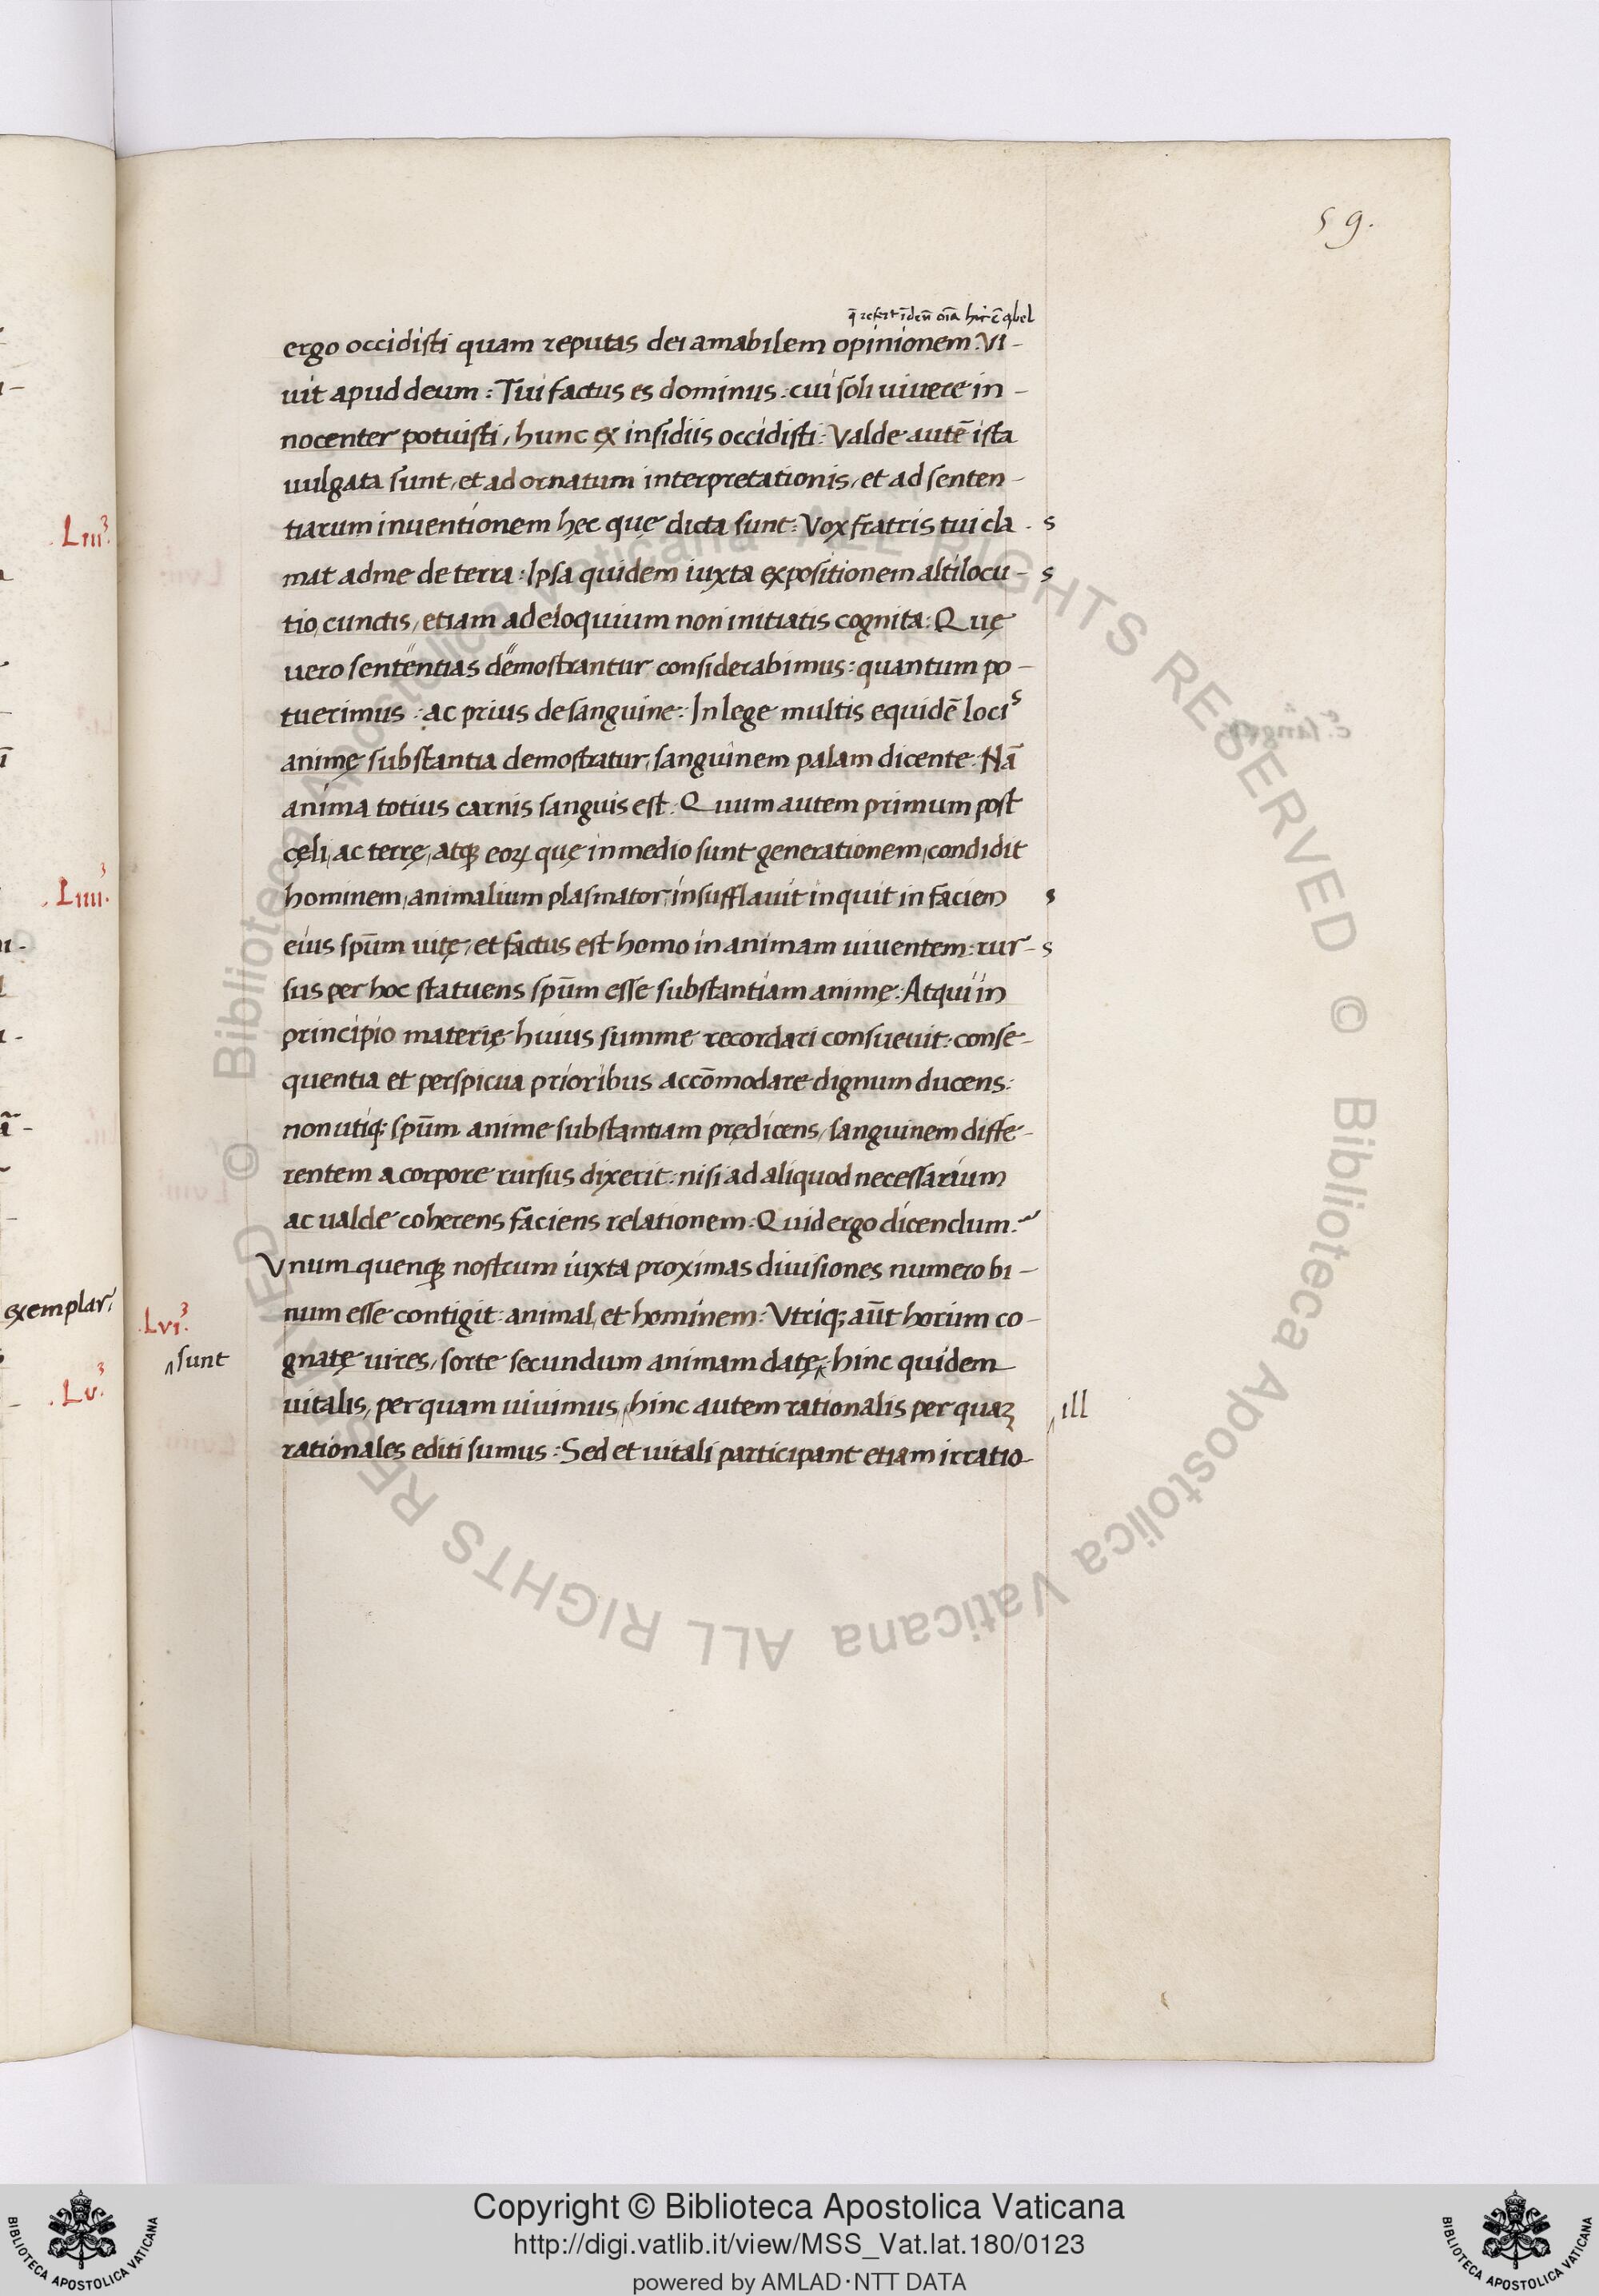 59.
ergo occidisti quam reputas dei amabilem opinionem: Vi-
uit apud deum: Tui factus es dominus: cui soli uiuere in-
nocenter potuisti, hunc ex insidiis occidisti: Valde autē ista
uulgata sunt, et ad ornatum interpretationis, et ad senten-
Liii.
tiarum inuentionem hęc quę dicta sunt: Vox fratris tui cla- s
mat ad me de terra: Ipsa quidem iuxta expositionem altilocu- s
tio, cunctis, etiam ad eloquium non initiatis cognita: Quę
uero sententias demostrantur considerabimus: quantum po-
tuerimus: ac prius de sanguine: In lege multis equidē locis
animę substantia demostratur, sanguinem palam dicente: Nā
anima totius carnis sanguis est: Quum autem primum post
cęli, ac terrę, atq; eoꝝ quę in medio sunt generationem, condidit
Liiii.
hominem, animalium plasmator, insufflauit inquit in faciem s
eius sp̄um uitę, et factus est homo in animam uiuentem: rur- s
sus per hoc statuens sp̄um esse substantiam animę: Atqui in
principio materię huius summe recordari consueuit: conse-
quentia et perspicua prioribus accōmodare dignum ducens:
non utiq; sp̄um anime substantiam prędicens, sanguinem diffe-
rentem a corpore rursus dixerit: nisi ad aliquod necessarium
ac ualde coherens faciens relationem: Quid ergo dicendum?
Vnum quenq; nostrum iuxta proximas diuisiones numero bi-
exemplar
Lvi.
num esse contigit: animal, et hominem: Vtriq; aūt horum co-
sunt
gnatę uires, sorte secundum animam datę: hinc quidem
Lv.
uitalis, per quam uiuimus, hinc autem rationalis per quaꝫ ill
rationales editi sumus: Sed et uitali participant etiam irratio-
© Biblioteca Apostolica Vaticana ALL RIGHTS RESERVED © Biblioteca Apostolica Vaticana ALL RIGHTS RESERVED
BIBLIOTECA APOSTOLICA VATICANA
Copyright © Biblioteca Apostolica Vaticana
http://digi.vatlib.it/view/MSS_Vat.lat.180/0123
powered by AMLAD·NTT DATA
BIBLIOTECA APOSTOLICA VATICANA